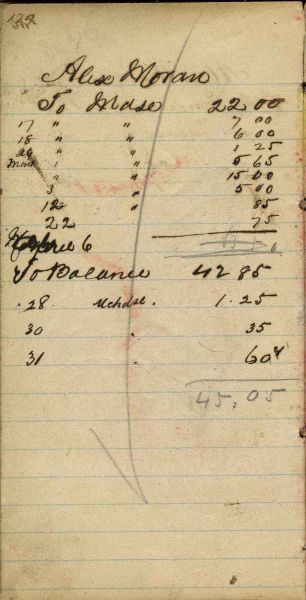 132
Alex Moran
To Mdse 22 00
17 " " 7 00
18 " " 6 00
20 " " 1 25
Mch 1 " " 5 65
" " 15 00
3 " 5 00
12 " 85
22 75
6
To Balance 42 85
28 Mchdse. 1.25
30 . 35
31 . 60
45,05